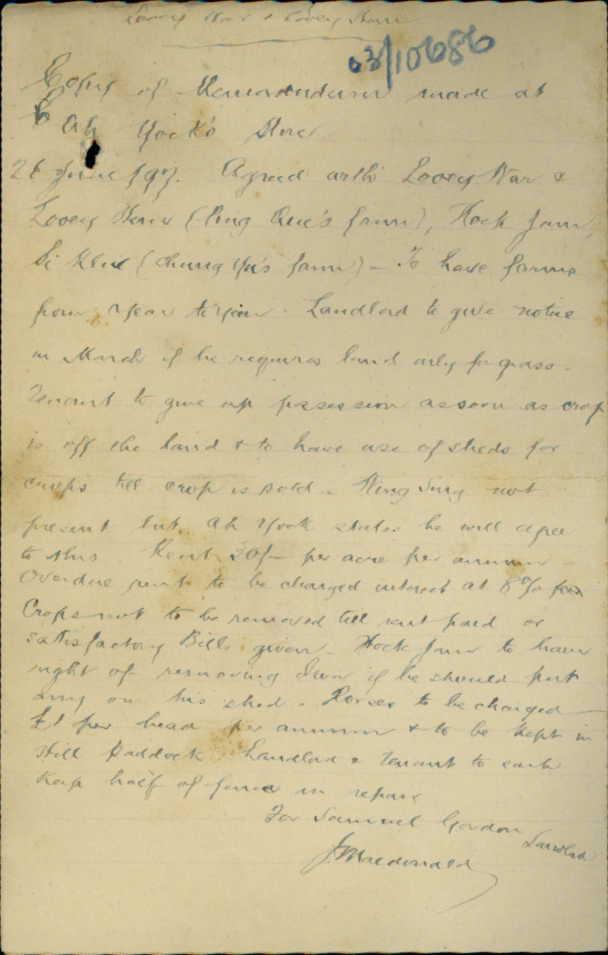 Looey War & Looey
63/10686
Copy of Memorandum made at
Ah Yock's Store
26 June 197. Agreed with Looey War &
Looey (Ping Que's farm), Hock Jam,
(Chung Yu's farm) - To have farms
from year to year. Landlord to give notice
in March if he requires land only for grass.
Tenant to give up possession as soon as crop
is off the land & to have use of sheds for
crops till crop is sold. Ning Sing not
present but Ah Yook states he will agree
to this Rent 20/- per acre per annum
Overdue rents to be charged interest at 8%
Crops not to be removed till rent paid or
satisfactory Bills given. Hock Jam to have
right of removing Iron if he should put
any on his shed. Horses to be charged
£1 per head per annum & to be kept in
Hill Paddock Landlord & tenant to each
keep half of fence in repair
For Samuel Gordon Landlord
J Macdonald